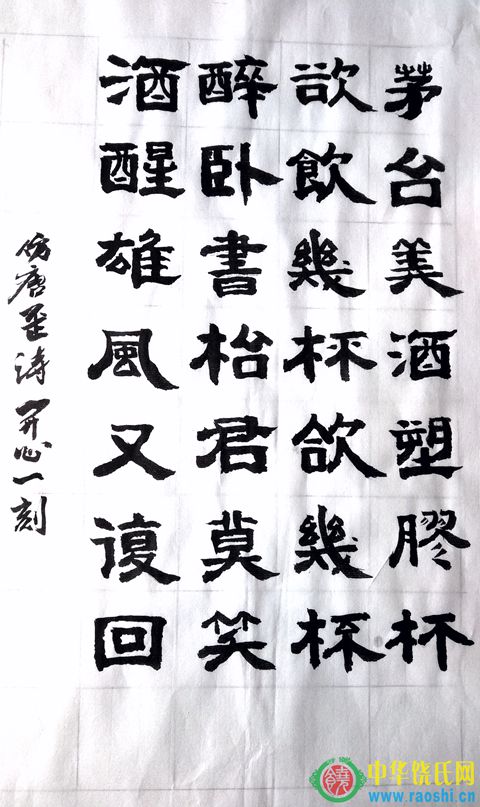 茅台美酒塑膠杯
欲飲幾杯欲幾杯
醉卧書枱君莫笑
酒醒雄風又復回
仿唐歪诗 开心一刻
饒
中华饶氏网
www.raoshi.cn